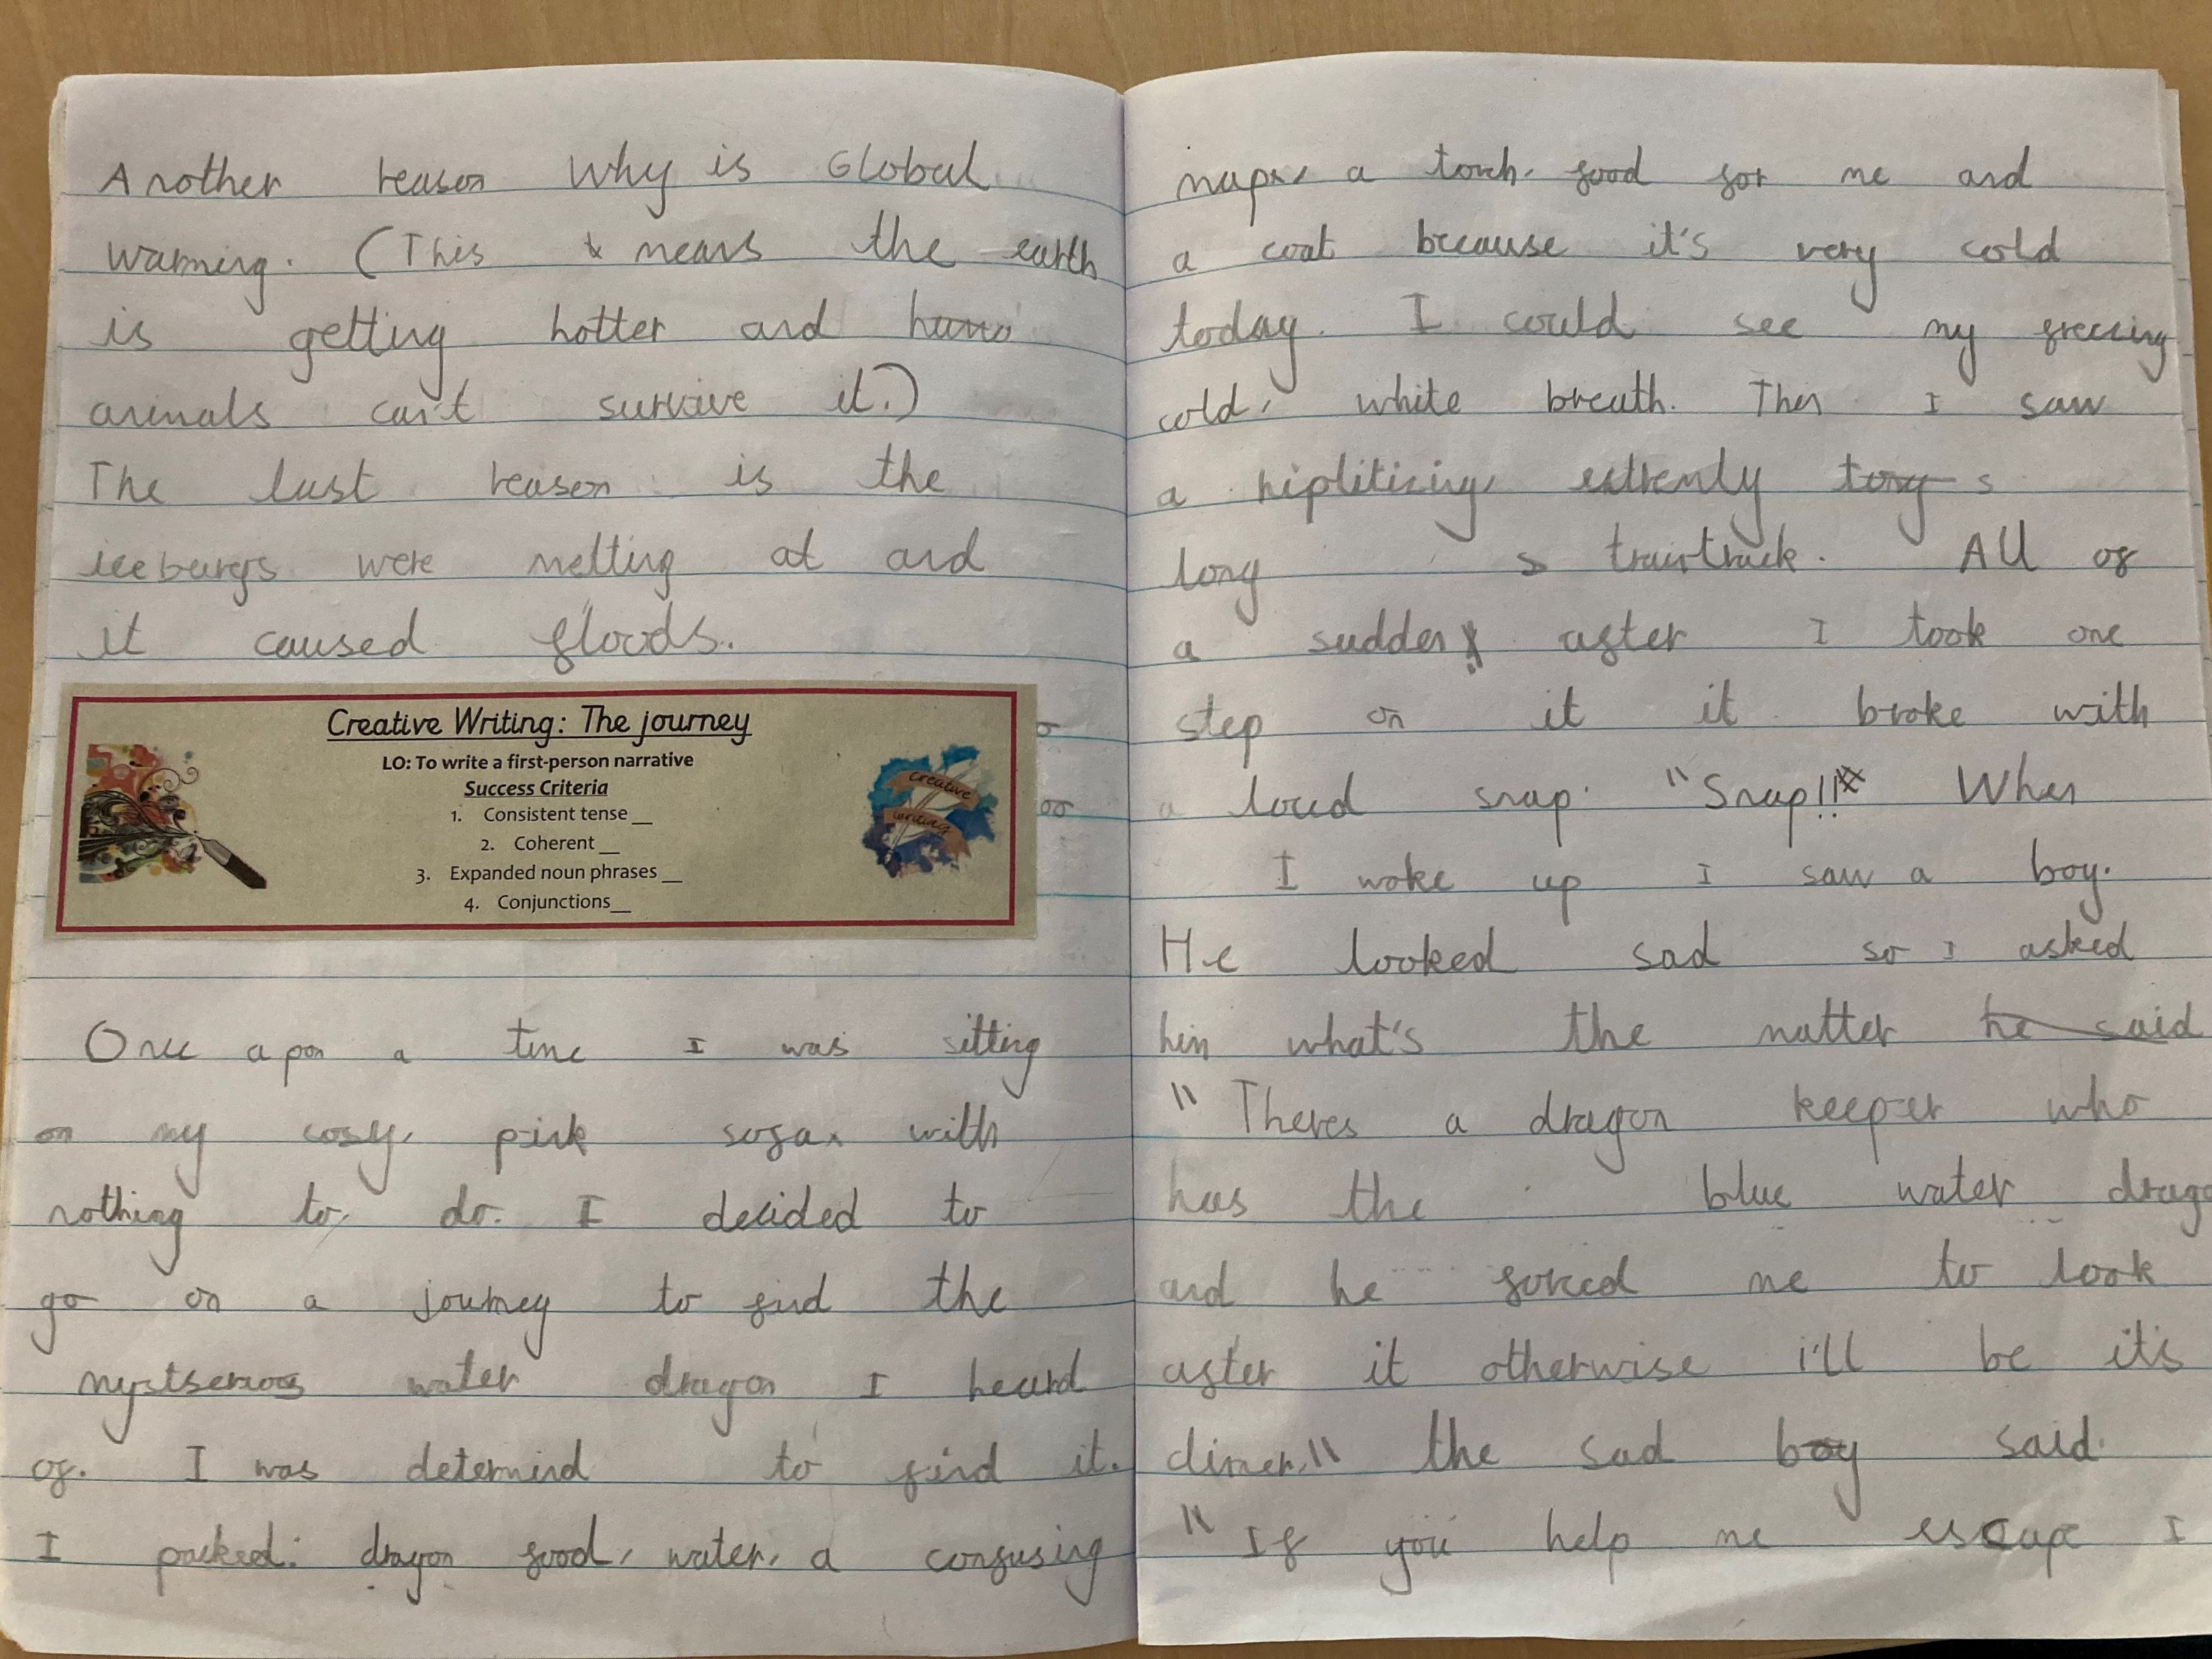 Another reason why is Global
warming. (This means the earth
is getting hotter and
animals can't survive it.)
The last reason is the
iceburgs were melting at and
it caused floods.
Creative Writing: The journey
LO: To write a first-person narrative
Success Criteria
1. Consistent tense __
2. Coherent __
3. Expanded noun phrases __
4. Conjunctions__
creative
writing
Once apon a time I was sitting
on my cosy, pink sofa, with
nothing to do. I decided to
go on a journey to find the
mystserious water dragon I heard
of. I was determind to find it.
I packed: dragon food, water, a confusing
map, a torch, food for me and
a coat because it's very cold
today. I could see my freezing
cold, white breath. Then I saw
a hiplitizing, extremly tong s
long s traintrack. All of
a sudden after I took one
step on it it broke with
a loud snap. "Snap!!" When
I woke up I saw a boy.
He looked sad so I asked
him what's the matter he said
"Theres a dragon keeper who
has the blue water drago
and he forced me to look
after it otherwise i'll be it's
dinner," the sad boy said.
"If you help me escape I